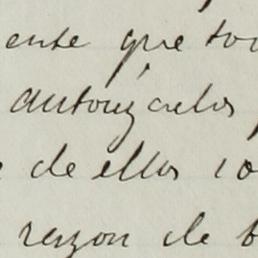 ente que to
autorizarlos
de ellos co
razon de t